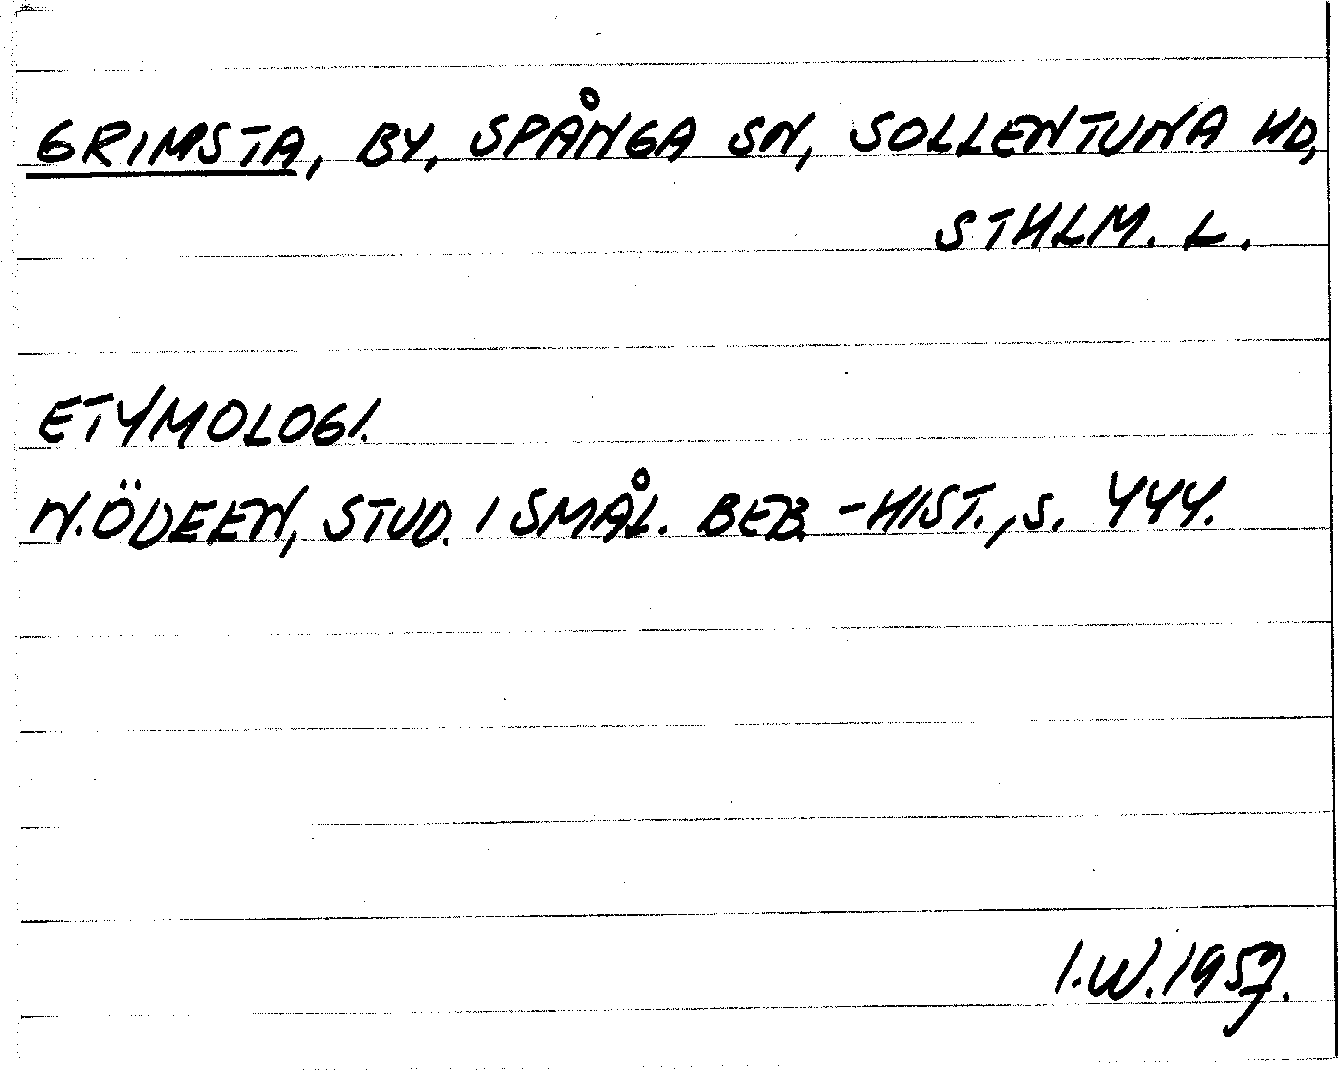 GRIMSTA, BY, SPÅNGA SN, SOLLENTUNA HD,
STHLM. L.
ETYMOLOGI.
N. ÖDEEN, STUD. I SMÅL. BEB.-HIST., S. 444.
I.W. 1957.